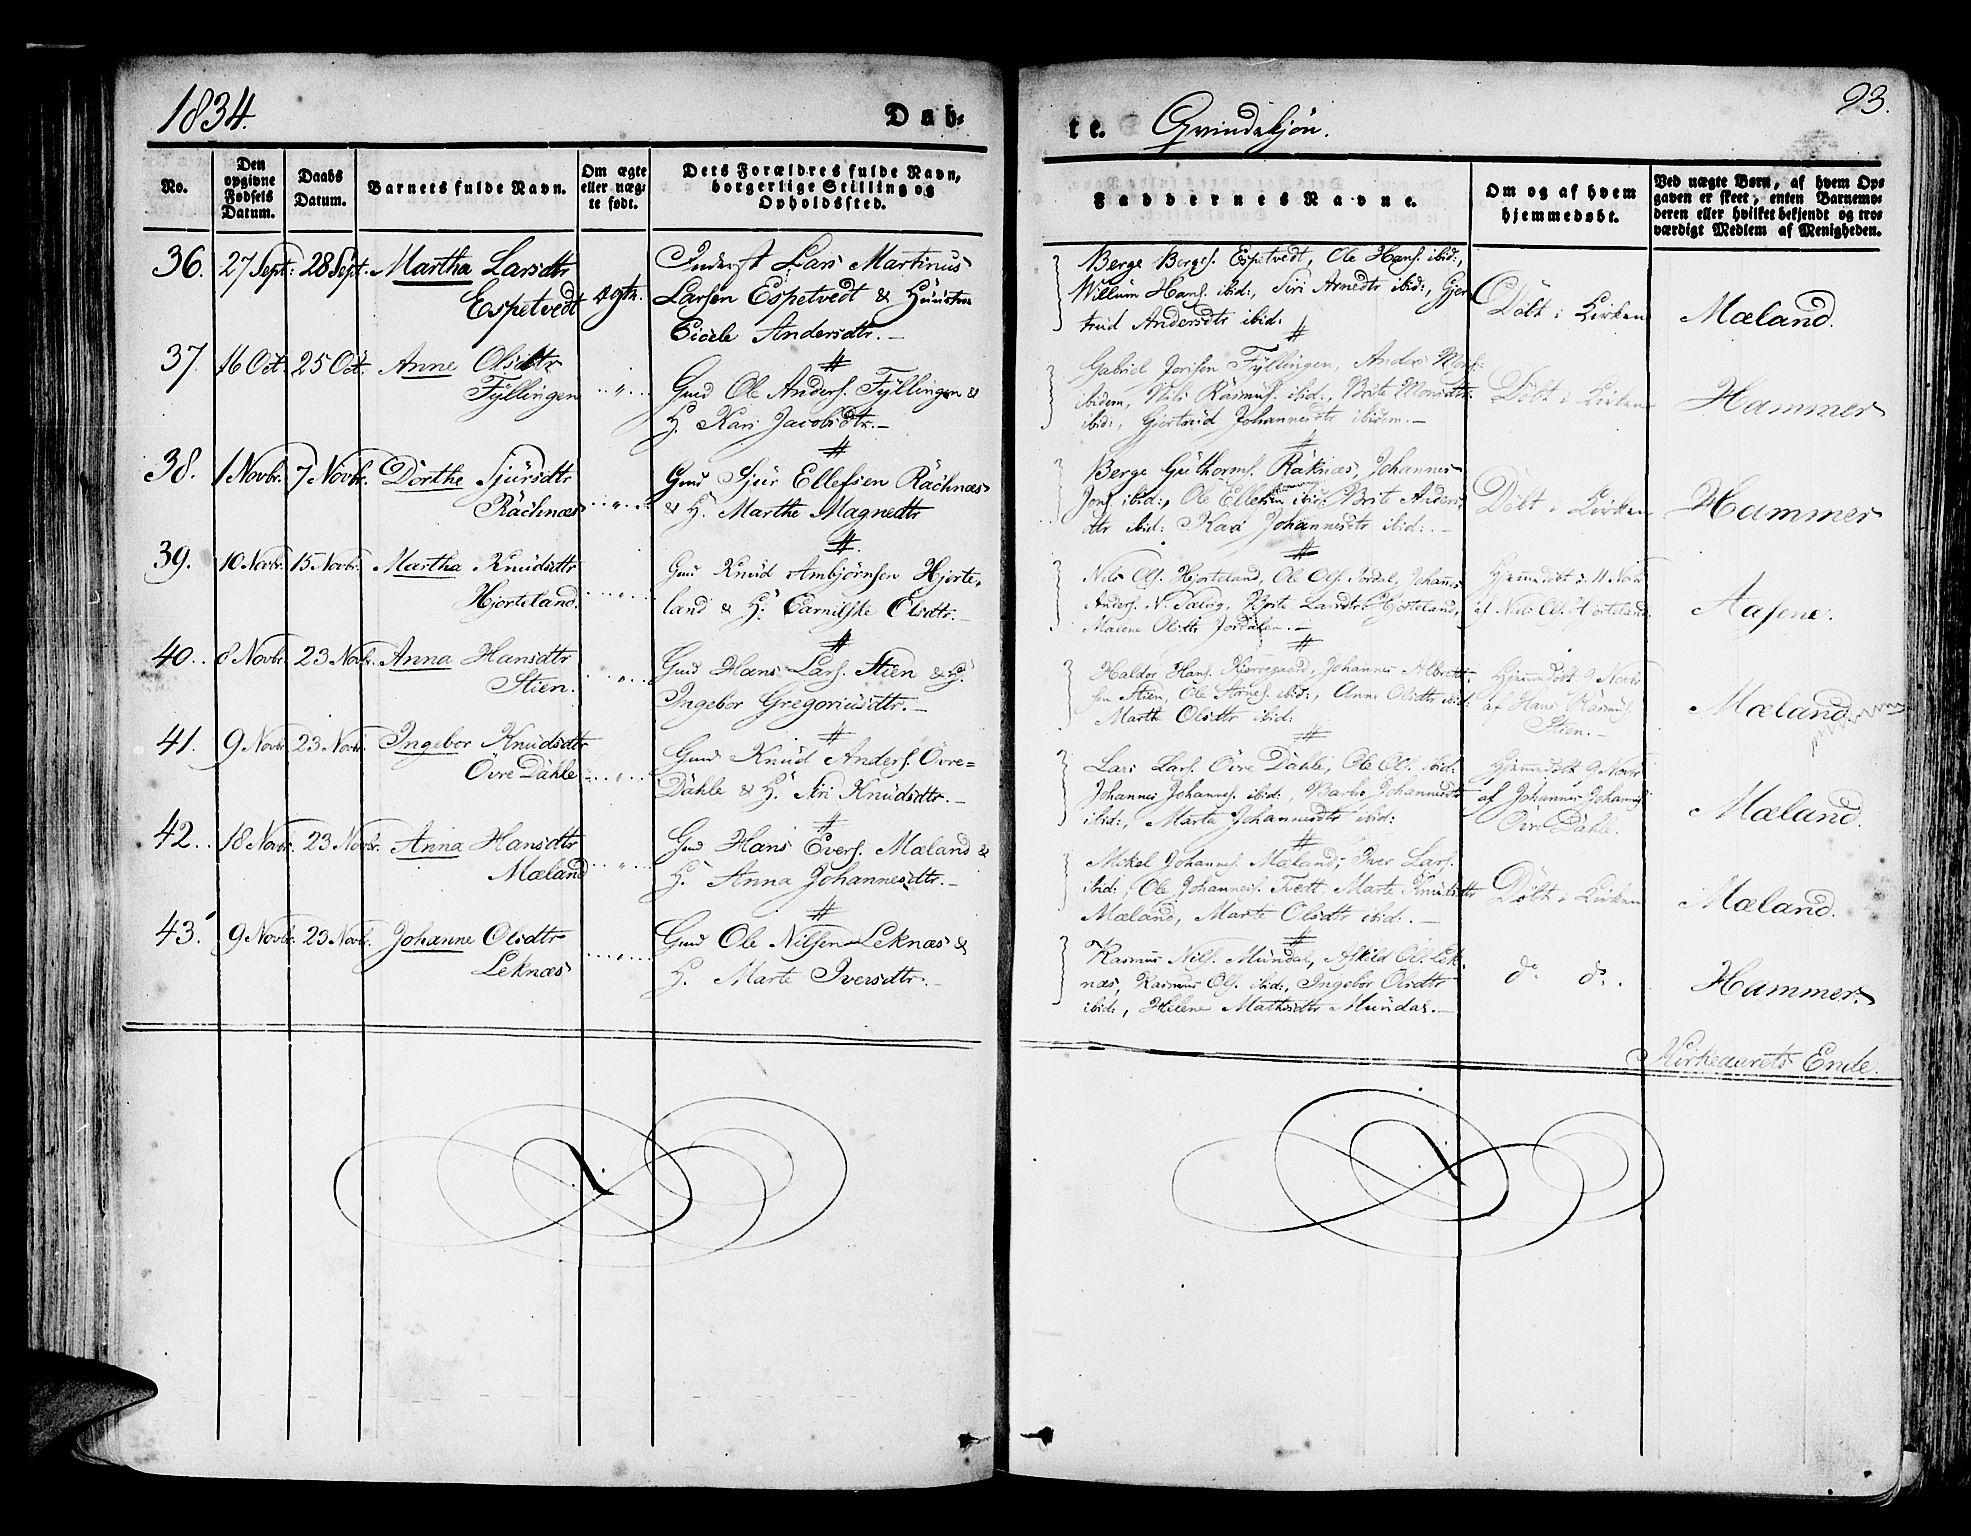 1834.
Døb-
te. Qvindekjön.
93.
No.
Den opgivne Fødsels Datum.
Daabs Datum.
Barnets fulde Navn.
Om ægte eller uægte født.
Dets Forældres fulde Navn, borgerlige Stilling og Opholdssted.
Faddernes Navne.
Om og af hvem hjemmedøbt.
Ved uægte Børn, af hvem Opgaven er skeet, enten Barnemoderen eller hvilket bekjendt og troværdigt Medlem af Menigheden.
36. 27 Sept: 28 Sept. Martha Larsdtr
Espetvedt ægte.
Inderst Lars Martinus
Larsen Espetvedt & Hüüstrue
Cicele Andersdtr.
Berge Berges. Espetvedt, Ole Hans. ibid:,
Willum Hans. ibid:, Siri Arnedtr ibid:, Gjer
trüd Andersdtr ibid:
Döbt i Kirken
Mæland.
37. 16 Oct. 25 Oct. Anne Olsdtr
Fÿllingen
Gmd Ole Anders. Fÿllingen &
H. Kari Jacobsdtr.
Gabriel Fÿllingen, Anders Mons.
ibidem, Nils Rasmus. ibid:, Brite Monsdtr
ibid:, Gjertrüd Johannesdtr ibidem.
Döbt i Kirken
Hammer
38. 1 Novbr. 7 Novbr. Dorthe Sjürsdtr
Räcknæs
Gmd Sjur Ellefsen Räcknæs
& H. Marthe Magnedtr
Berge Güthorms. Räknæs, Johannes
Jons. ibid:, Ole Ellefsen ibid: Brit Anders
dtr ibid: Kari Johannesdtr ibid:
Döbt i Kirken
Hammer
39. 10 Novbr. 15 Novbr. Martha Knüdsdtr
Hjorteland.
Gmd Knüd Ambjörnsen Hjorte-
land & H. Olsdtr.
Nils Ols. Hjorteland, Ole Ols. Johannes
Anders. Brite Larsdtr Hjorteland,
Malene Olsdtr
Hjemmedöbt d. 11 Novbr
af Nils Ols. Hjorteland
Aasene.
40. 8 Novbr. 23 Novbr. Anna Hansdtr
Stien.
Gmd Hans Lars. Stien & H.
Ingebor Gregoriusdtr.
Haldor Hans. Johannes Albrekt
sen Stien, Ole Arnes. ibid:, Anne Olsdtr ibid:
Marthe Olsdtr ibid:
Hjemmedöbt 9 Novbr
af Hans Rasmus.
Stien.
Mæland
41. 9 Novbr 23 Novbr. Ingebor Knüdsdtr
Övre Dähle
Gmd Knüd Anders. Övre=
Dähle & H. Siri Knüdsdtr.
Lars Lars. Övre Dähle, Ole Ols. ibid:
Johannes Johannes. ibid:, Barbro Johannesdtr
ibid:, Marta Johannesdtr ibid:
Hjemmedöbt 9 Novbr
af Johannes Johannes.
Övre Dähle.
Mæland.
42. 18 Novbr. 23 Novbr. Anna Hansdtr
Mæland
Gmd Hans Evers. Mæland &
H. Anna Johannesdtr.
Mikel Johannes. Mæland, Iver Lars.
ibid:, Ole Johannes. Tvedt Marte Knüdsdtr
Mæland, Marte Olsdtr ibid:.
Döbt i Kirken
Mæland.
43. 9 Novbr. 23 Novbr. Johanne Olsdtr
Leknæs
Gmd Ole Nilsen Leknæs &
H. Marte Iversdtr.
Rasmus Nils. Mündal, Askild Ols. Lek-
næs, Rasmus Ols. ibid:, Ingebor Olsdtr
ibid:, Helene Mathisdtr Mündal.
do. do.
Hammer.
Kirkeaarets Ende.